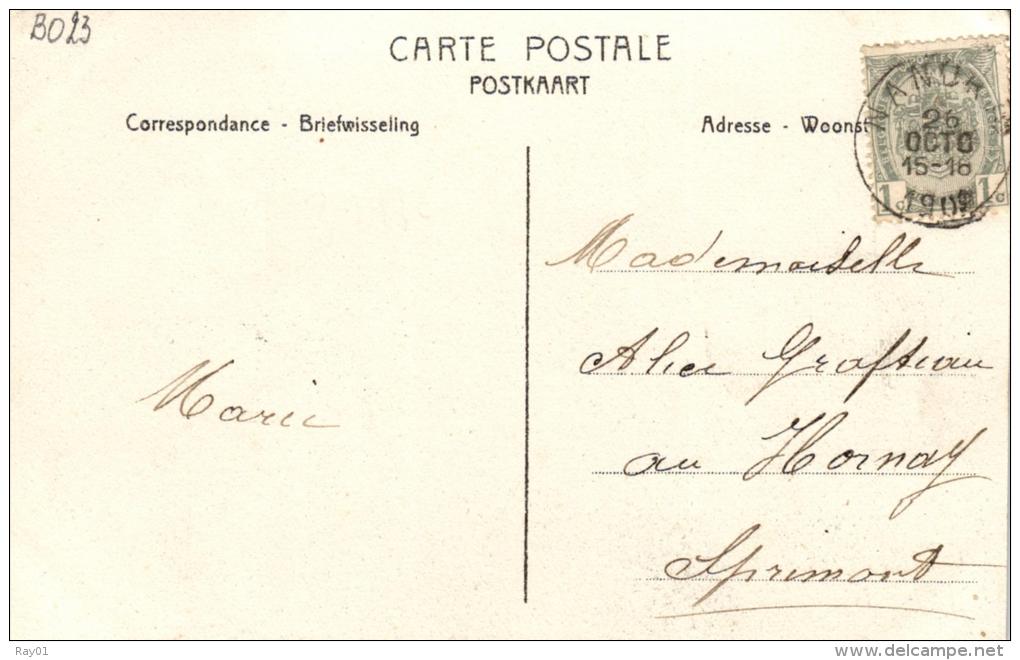 B023
CARTE POSTALE
POSTKAART
Correspondance - Briefwisseling
Adresse - Woonst
NAMUR
26
OCTO
15-16
1909
1 c 1 c
Mademoiselle
Alice
au Hornay
Sprimont
Marie
Ray01
www.delcampe.net